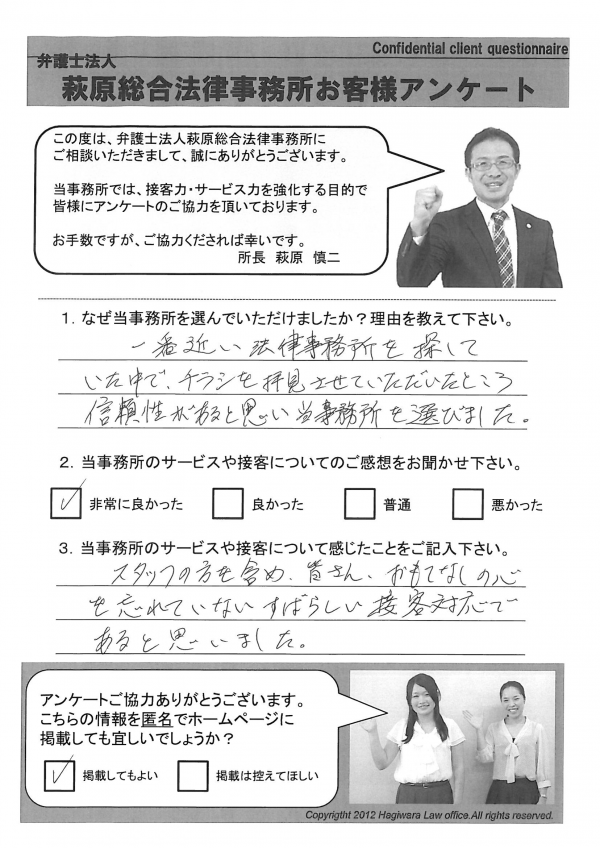 Confidential client questionnaire
弁護士法人
萩原総合法律事務所お客様アンケート
この度は、弁護士法人萩原総合法律事務所に
ご相談いただきまして、誠にありがとうございます。
当事務所では、接客力・サービス力を強化する目的で
皆様にアンケートのご協力を頂いております。
お手数ですが、ご協力くだされば幸いです。
所長 萩原 慎二
1. なぜ当事務所を選んでいただけましたか？理由を教えて下さい。
一番近い法律事務所を探して
いた中で、チラシを拝見させていただいたところ
信頼性があると思い当事務所を選びました。
2. 当事務所のサービスや接客についてのご感想をお聞かせ下さい。
非常に良かった 良かった 普通 悪かった
3. 当事務所のサービスや接客について感じたことをご記入下さい。
スタッフの方を含め、皆さん、おもてなしの心
を忘れていないすばらしい接客対応で
あると思いました。
アンケートご協力ありがとうございます。
こちらの情報を匿名でホームページに
掲載しても宜しいでしょうか？
掲載してもよい 掲載は控えてほしい
Copyright 2012 Hagiwara Law office.All rights reserved.